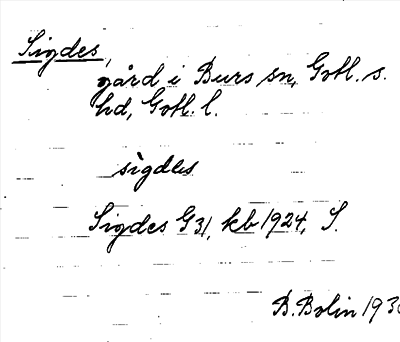 Sigdes,
gård i Burs sn, Gotl. s.
hd, Gotl. l.
sìgdes
Sigdes G 31, kb 1924, S.
B. Bolin 193